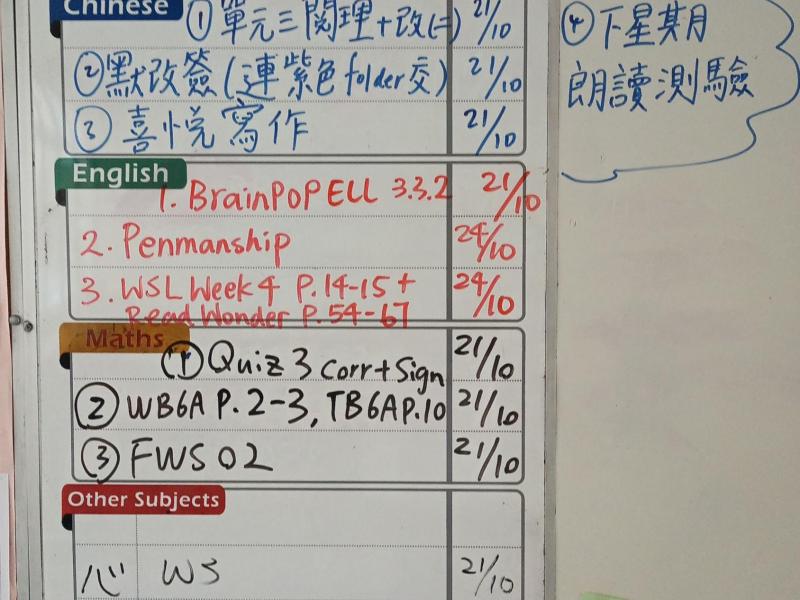 Chinese
① 單元三閱理+改(二) 21/10
② 默改簽(連紫色folder交) 21/10
③ 喜悅寫作 21/10
④ 下星期月
朗讀測驗
English
1. BrainPOP ELL 3.3.2 21/10
2. Penmanship 24/10
3. WSL Week 4 P.14-15 + 24/10
Read Wonder P.54-67
Maths
① Quiz 3 corr+Sign 21/10
② WB6A P.2-3, TB6A P.10 21/10
③ FWS 02 21/10
Other Subjects
心 WS 21/10